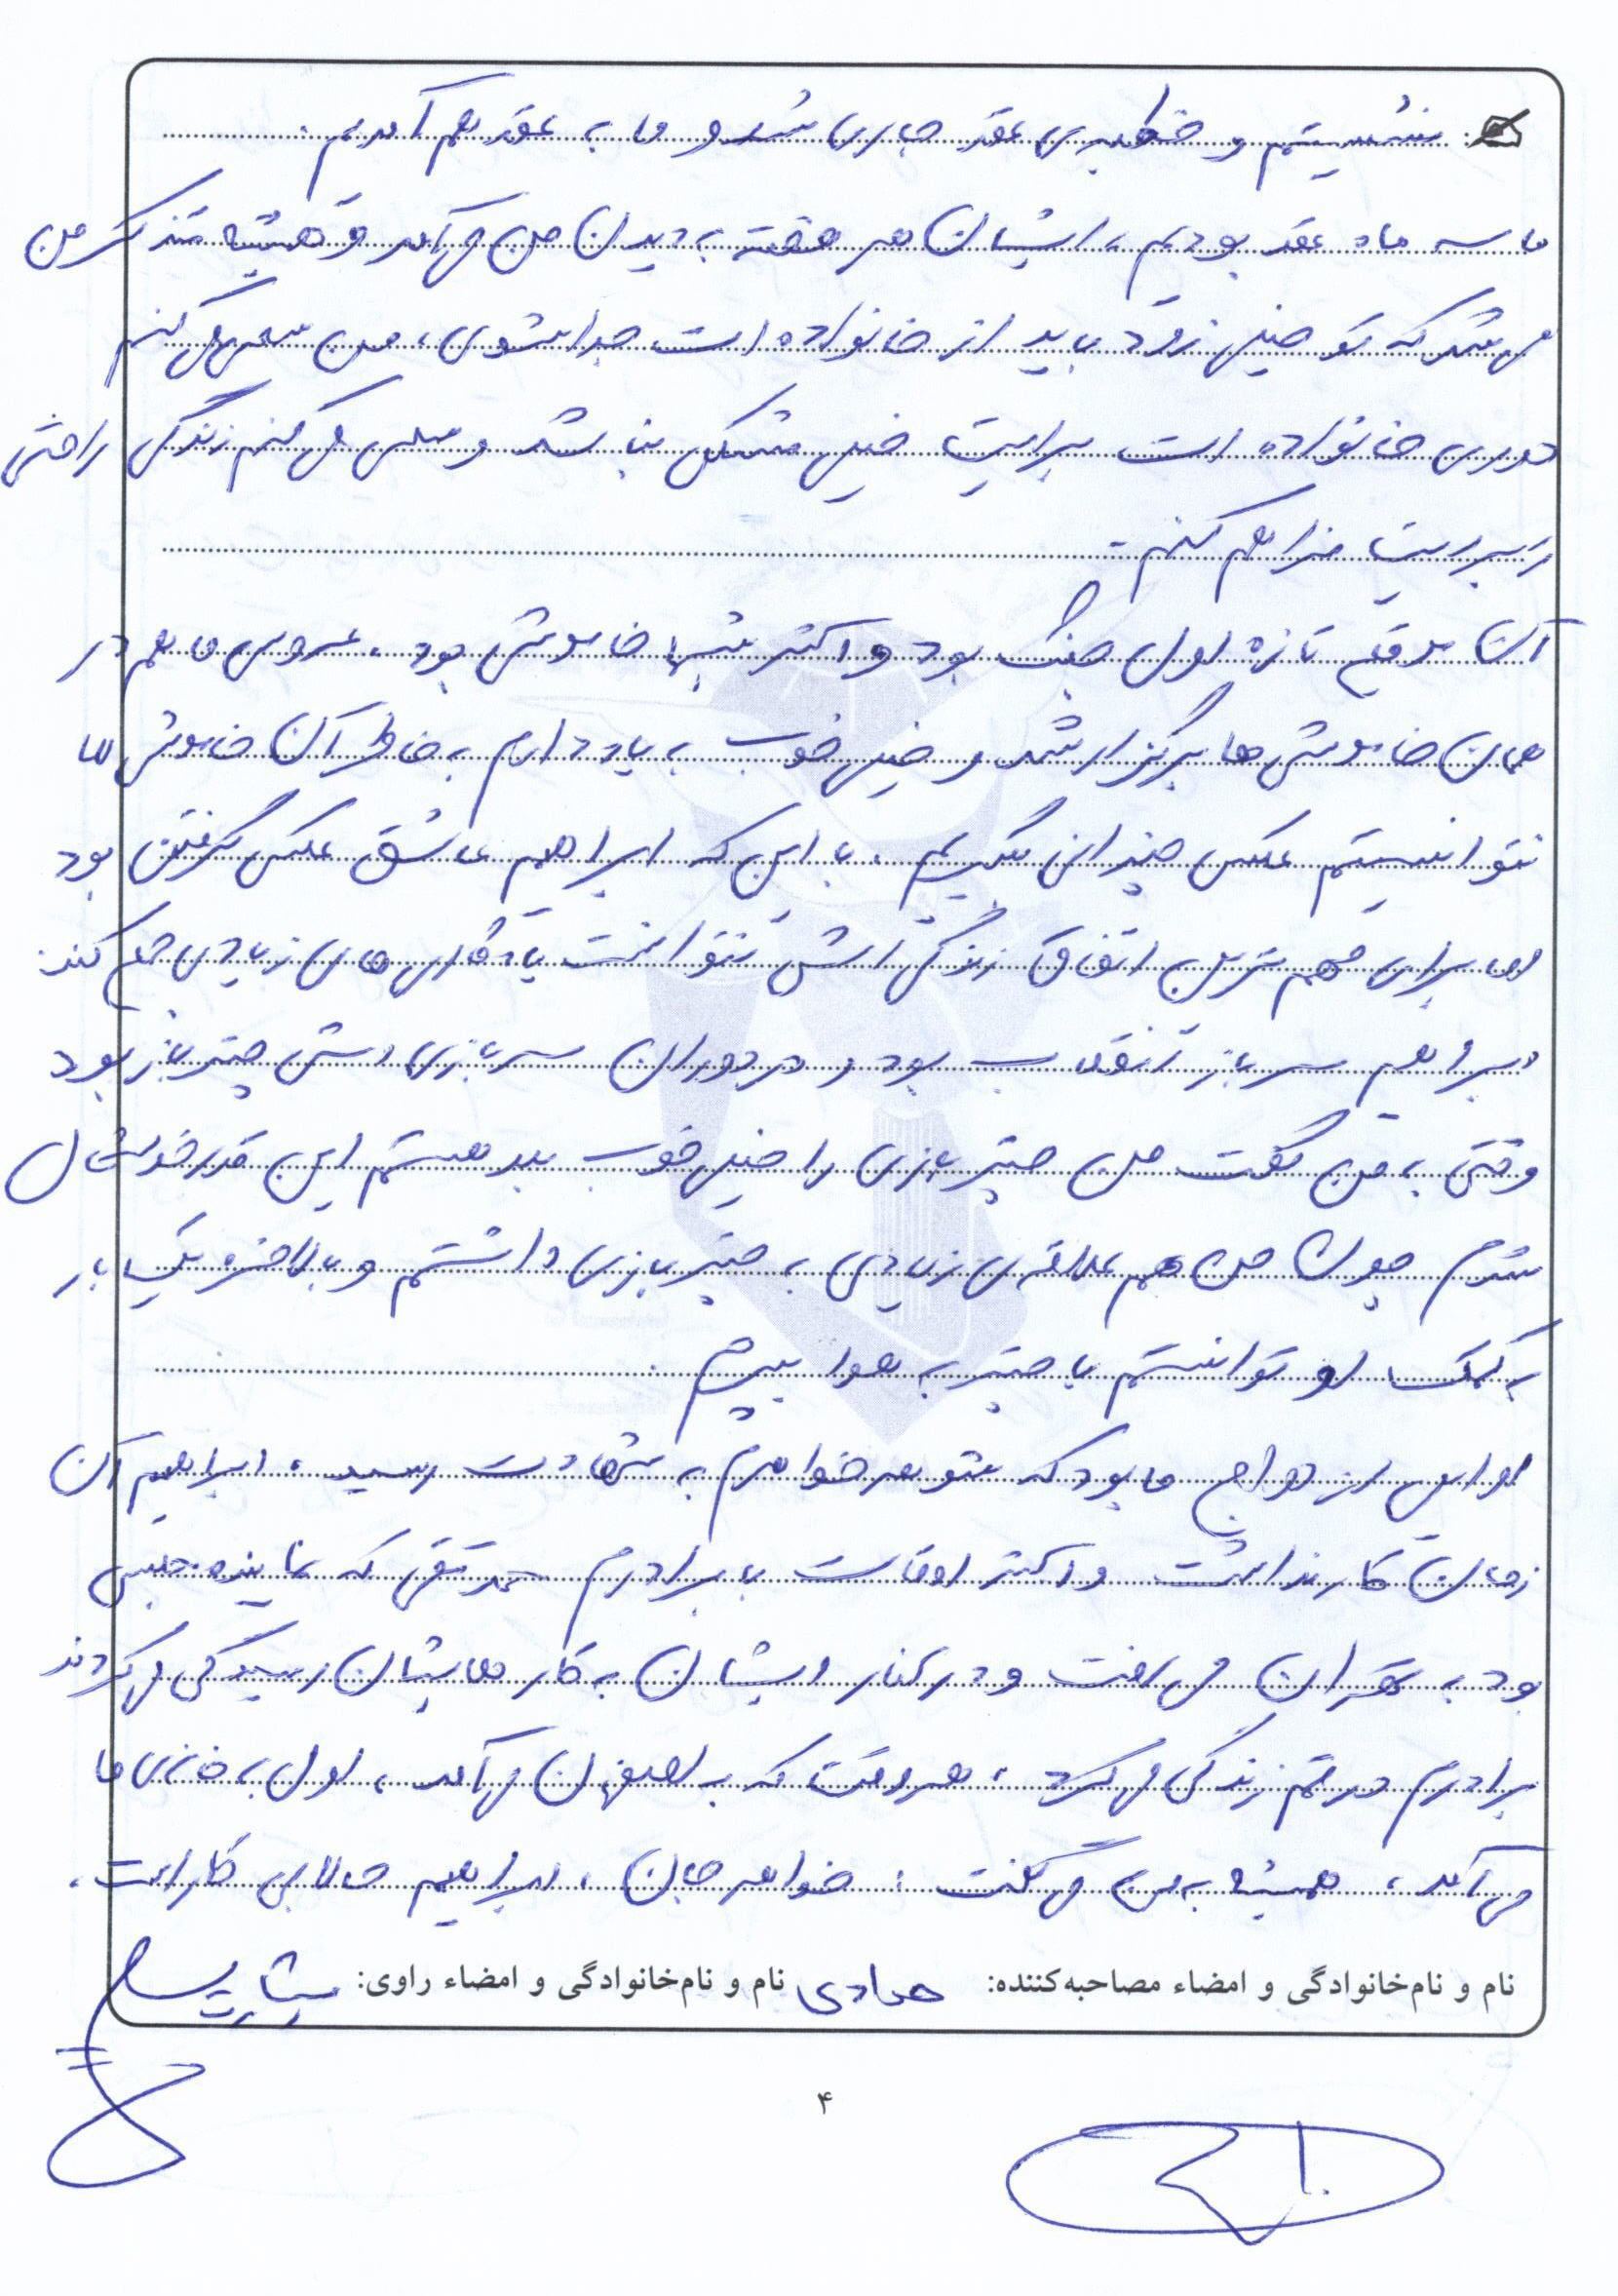 نشستیم و خطبه‌ی عقد جاری شد و ما به عقد هم آمدیم.
ما سه ماه عقد بودیم، ایشان هر هفته به دیدن من می‌آمد و همیشه متذکر من
می‌شد که تو خیلی زود باید از خانواده‌ات جدا شوی، من سعی می‌کنم
دوری خانواده‌ات برایت خیلی مشکل نباشد و سعی می‌کنم زندگی راحتی
را برایت فراهم کنم.
آن موقع تازه اول جنگ بود و اکثر شبها خاموشی بود، عروسی ما هم در
همان خاموشی‌ها برگزار شد و خیلی خوب به یاد دارم به خاطر آن خاموشی‌ها
نتوانستیم عکس چندانی بگیریم، با این که ابراهیم عاشق عکس گرفتن بود
اما برای مهم‌ترین اتفاق زندگی‌اش نتوانست یادگاری‌های زیادی جمع کند.
ابراهیم سرباز انقلاب بود و در دوران سربازی‌اش چتر باز بود
وقتی به من گفت من چتر بازی را خیلی خوب بلد هستم این قدر خوشحال
شدم چون من هم علاقه‌ی زیادی به چتر بازی داشتم و بالاخره یک بار
به کمک او توانستم با چتر به هوا بپرم.
اوایل ازدواج ما بود که شوهر خواهرم به شهادت رسید، ابراهیم آن
زمان کار نداشت و اکثر اوقات با برادرم محمد تقی که نماینده مجلس
بود به تهران می‌رفت و در کنار ایشان به کارهایشان رسیدگی می‌کردند
برادرم در قم زندگی می‌کرد، هر وقت که به اصفهان می‌آمد، اول به خانه‌ی ما
می‌آمد، همیشه به من می‌گفت: خواهر جان، ابراهیم جلای کار است.
نام و نام‌خانوادگی و امضاء مصاحبه‌کننده: نام و نام‌خانوادگی و امضاء راوی:
۴